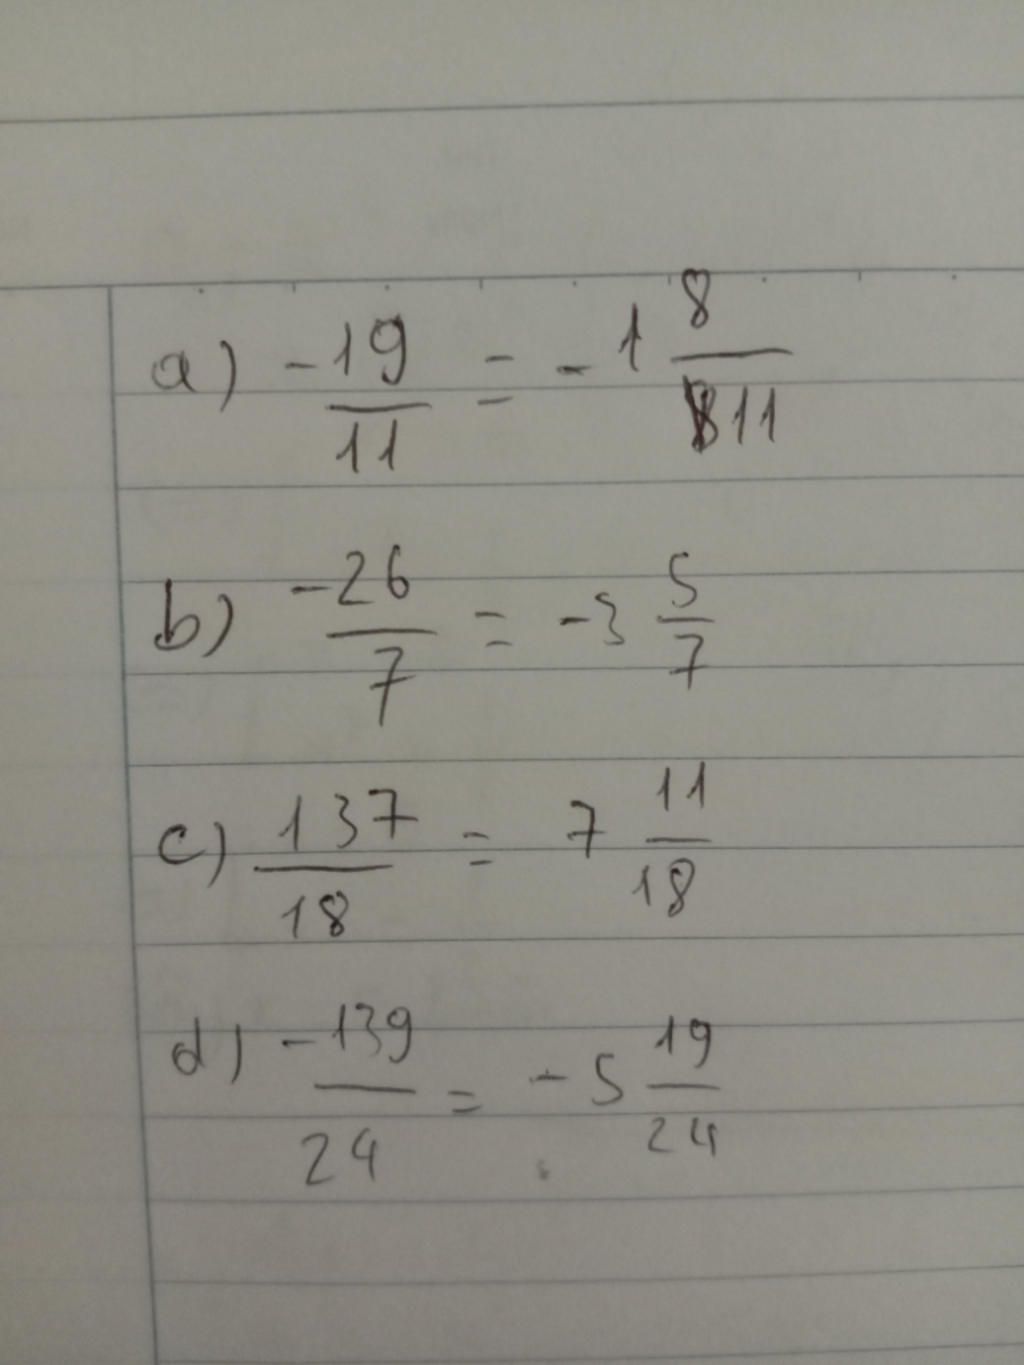 a) -19/11 = -1 8/11
b) -26/7 = -3 5/7
c) 137/18 = 7 11/18
d) -139/24 = -5 19/24